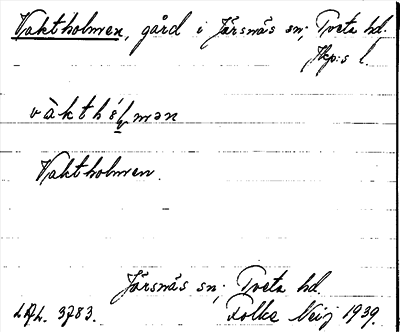 Vaktholmen, gård i Järsnäs sn; Tveta hd.
Jkp:s l.
vàkthól̥mən
Vaktholmen.
Järsnäs sn; Tveta hd.
3783. Folke 1939